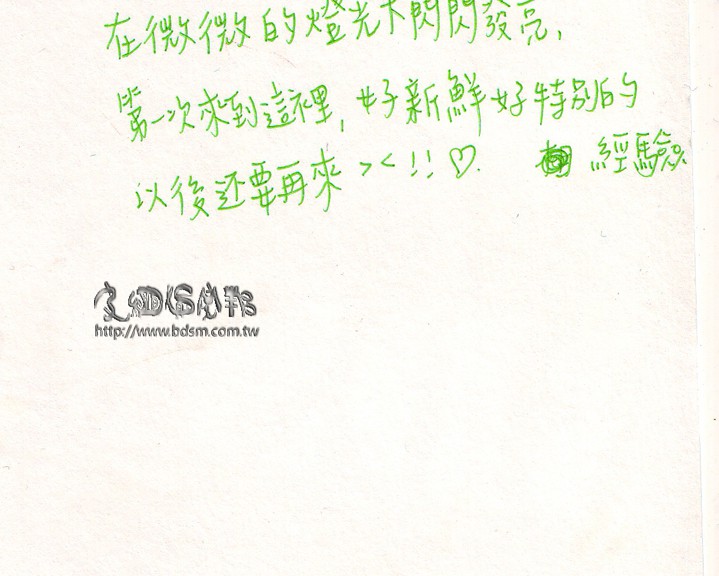 在微微的燈光下閃閃發亮,
第一次來到這裡,好新鮮好特別的
經驗
以後还要再來 >< !! ♡.
http://www.bdsm.com.tw